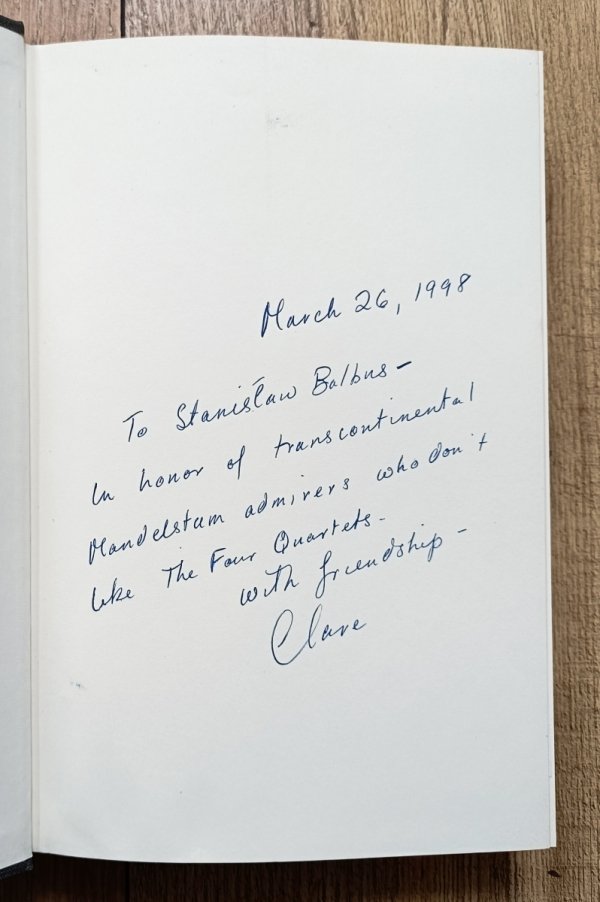 March 26, 1998
To Stanisław Balbus –
In honor of transcontinental
Mandelstam admirers who don't
like The Four Quartets.
With friendship –
Clare